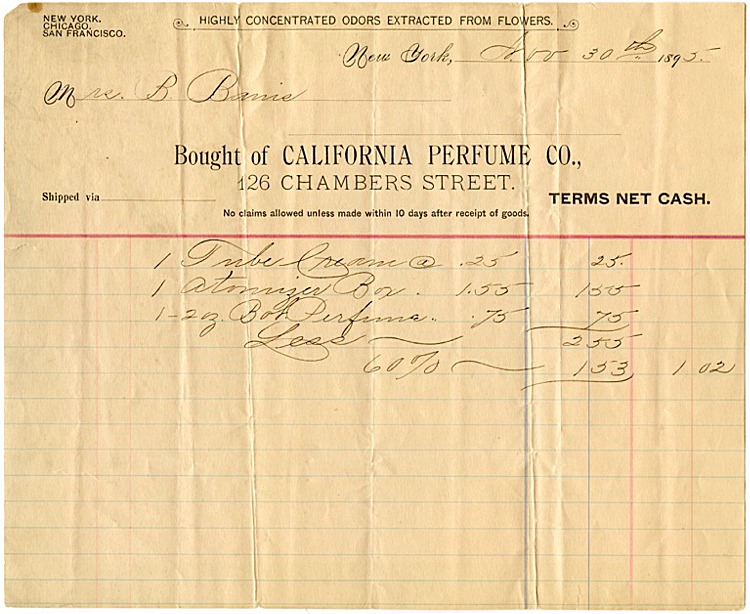 NEW YORK.
CHICAGO.
SAN FRANCISCO.
HIGHLY CONCENTRATED ODORS EXTRACTED FROM FLOWERS.
New York, Nov 30th 1895.
Mrs. B.
Bought of CALIFORNIA PERFUME CO.,
126 CHAMBERS STREET.
Shipped via
TERMS NET CASH.
No claims allowed unless made within 10 days after receipt of goods.
1 Tube Cream @ .25 25.
1 Atomizer Box. 1.55 155
1-2 oz. Bot. Perfume.. .75 75
Less 255
60% 153 1 02